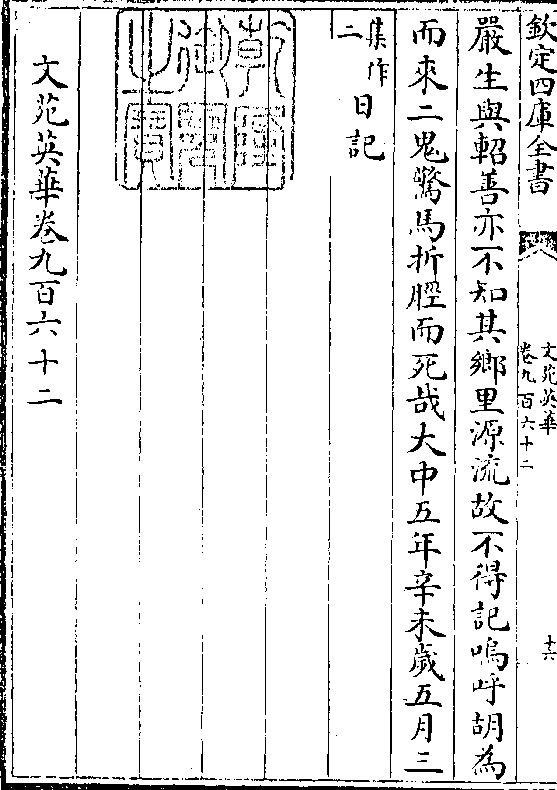 欽定四庫全書
文苑英華
卷九百六十二
十六
嚴生與軺善亦不知其鄉里源流故不得記嗚呼胡為
而來二鬼驚馬折脛而死哉大中五年辛未歲五月三
集作
二
日記
乾隆
御覽
之寶
文苑英華卷九百六十二